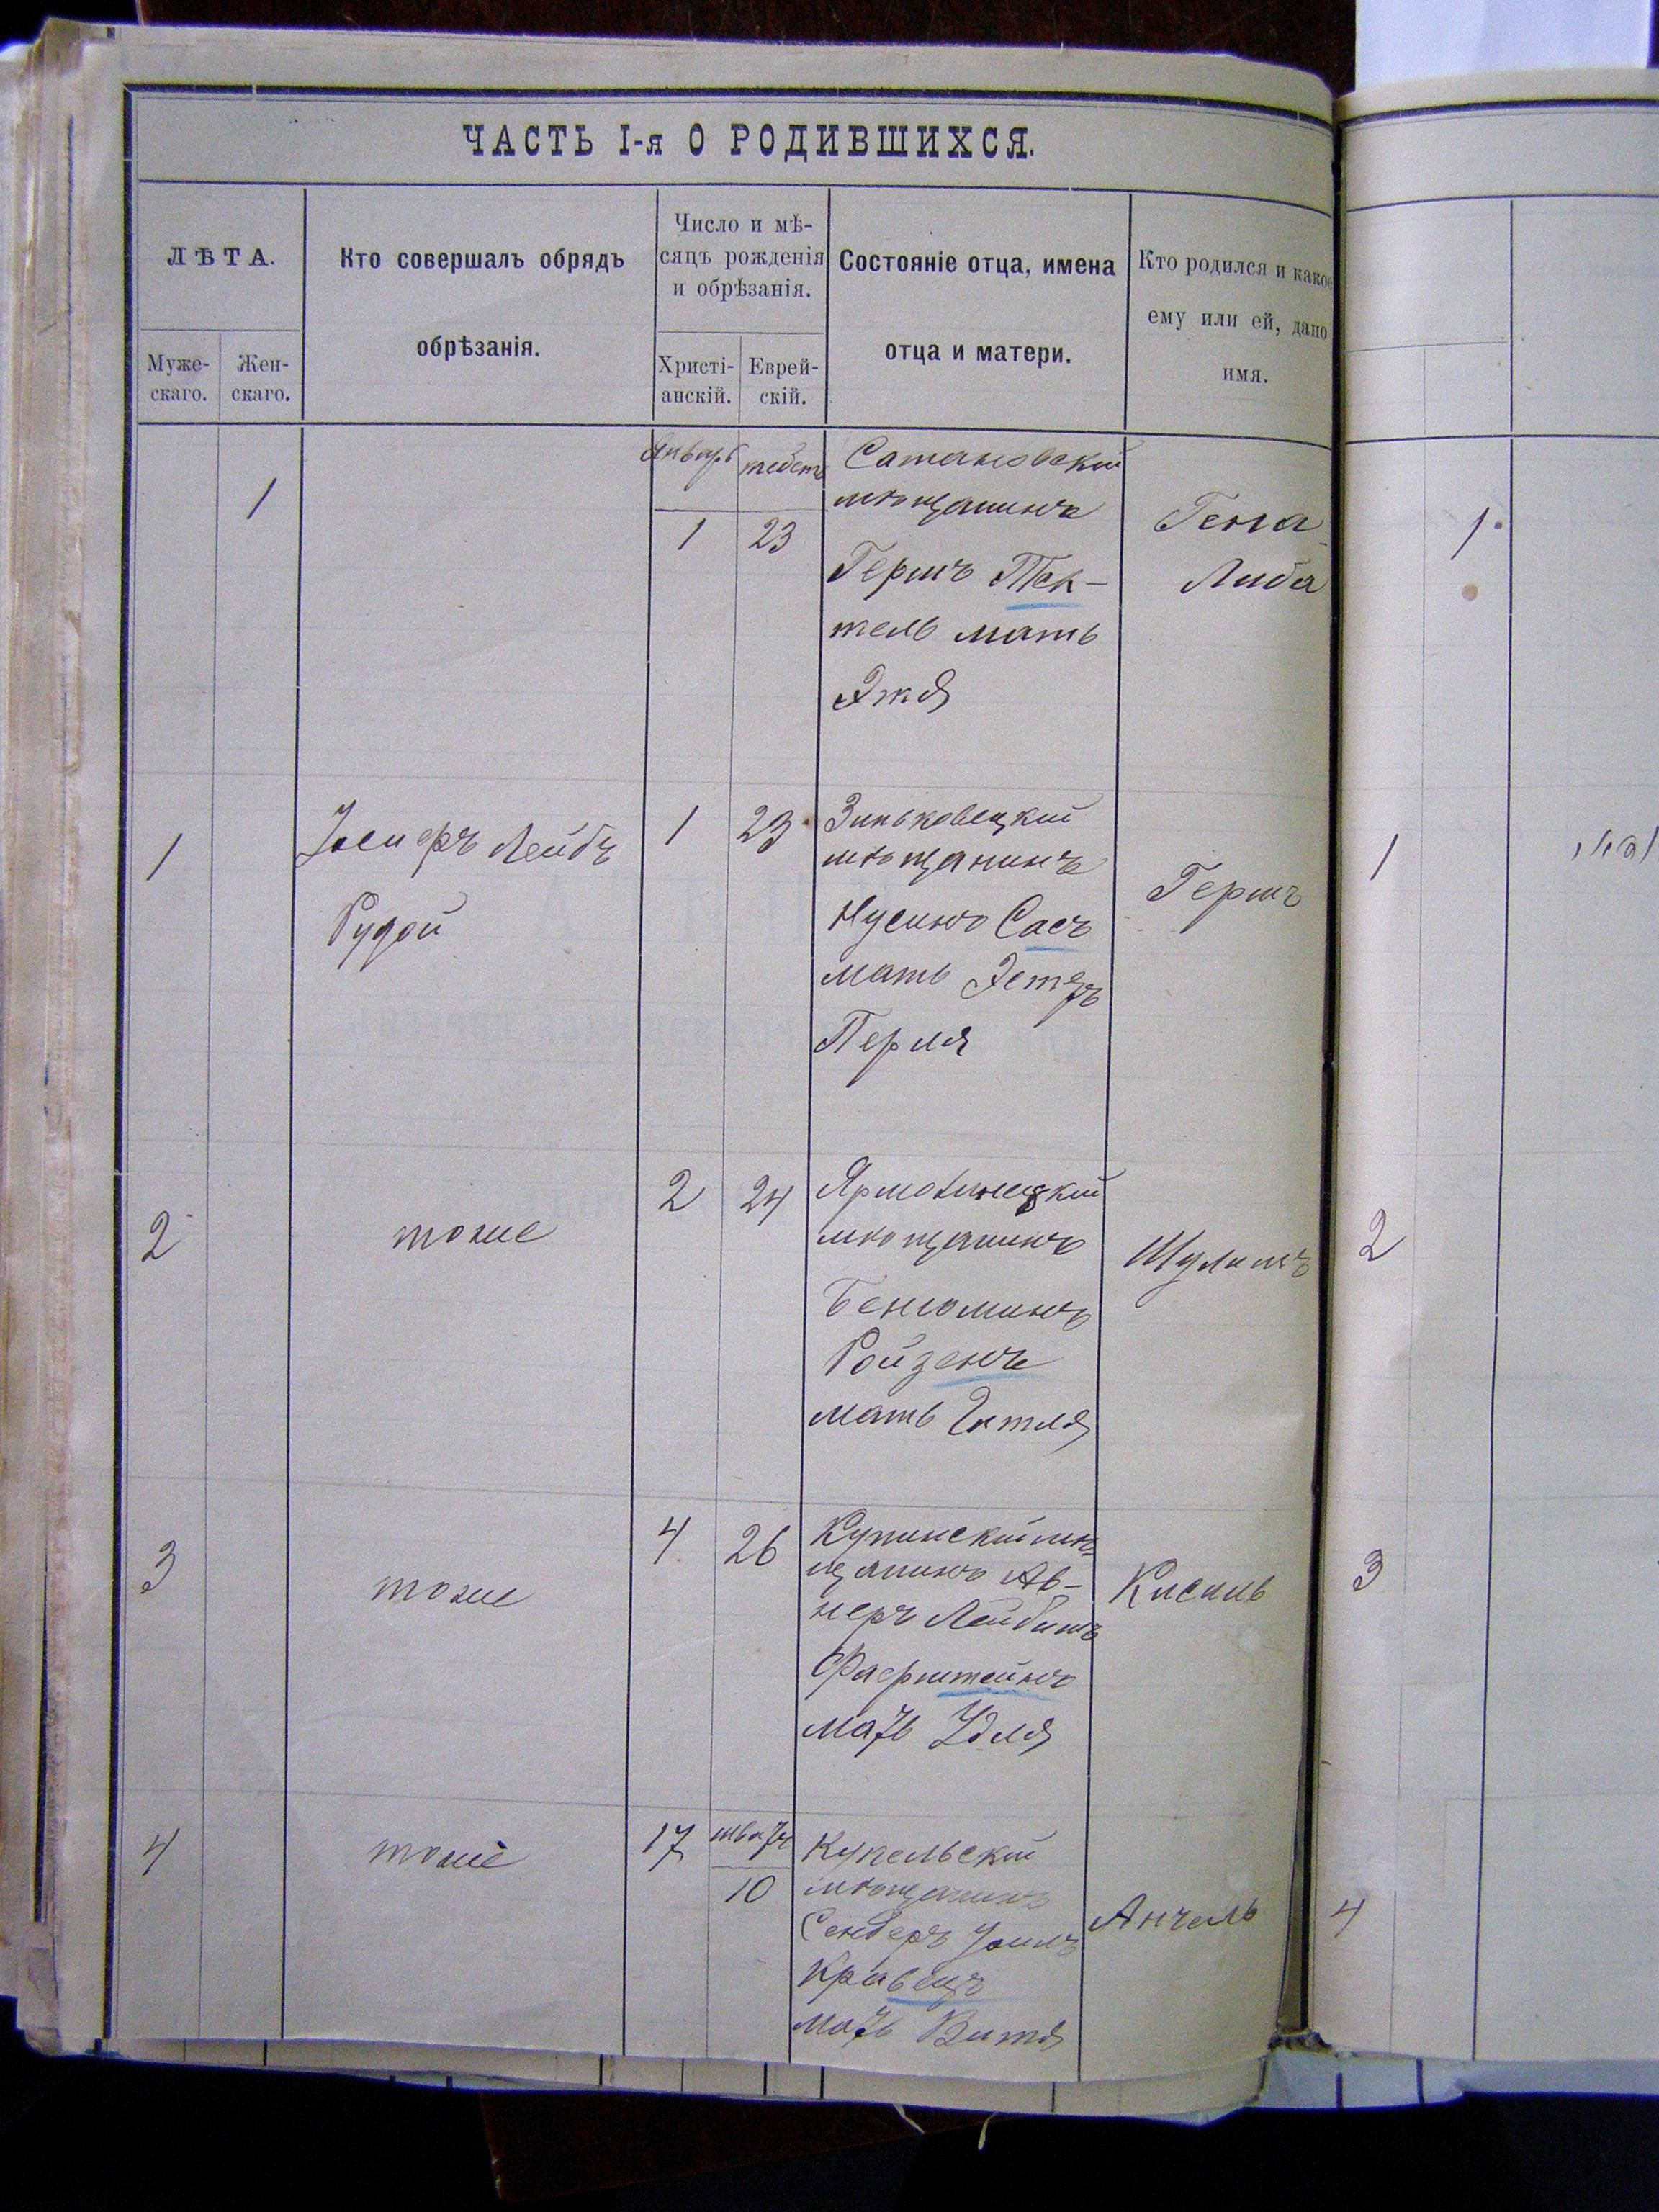 ЧАСТЬ I-я О РОДИВШИХСЯ.
ЛѢТА.
Муже-
скаго.
Жен-
скаго.
Кто совершалъ обрядъ
обрѣзанія.
Число и мѣ-
сяцъ рожденія
и обрѣзанія.
Христі-
анскій.
Еврей-
скій.
Состояніе отца, имена
отца и матери.
Кто родился и какое
ему или ей, дано
имя.
1
Январь
1
тебетъ
23
Сатановскій
мѣщанинъ
Гершъ Тек-
тель мать
Эжя
Гена
Либа
1
1
Іосифъ Лейбъ
Рудой
1
23
Зиньковецкій
мѣщанинъ
Нусинъ Сасъ
мать Эстеръ
Перля
Гершъ
1
2
тоже
2
24
Ярмолинецкій
мѣщанинъ
Бенюминъ
Ройзенъ
мать Гитля
Шулимъ
2
3
тоже
4
26
Купинскій мѣ-
щанинъ Ав-
неръ Лейбишъ
Фаерштейнъ
мать Удля
Кисиль
3
4
тоже
17
шватъ
10
Купельскій
мѣщанинъ
Сендеръ Іоилъ
Кравецъ
мать Витя
Анчель
4